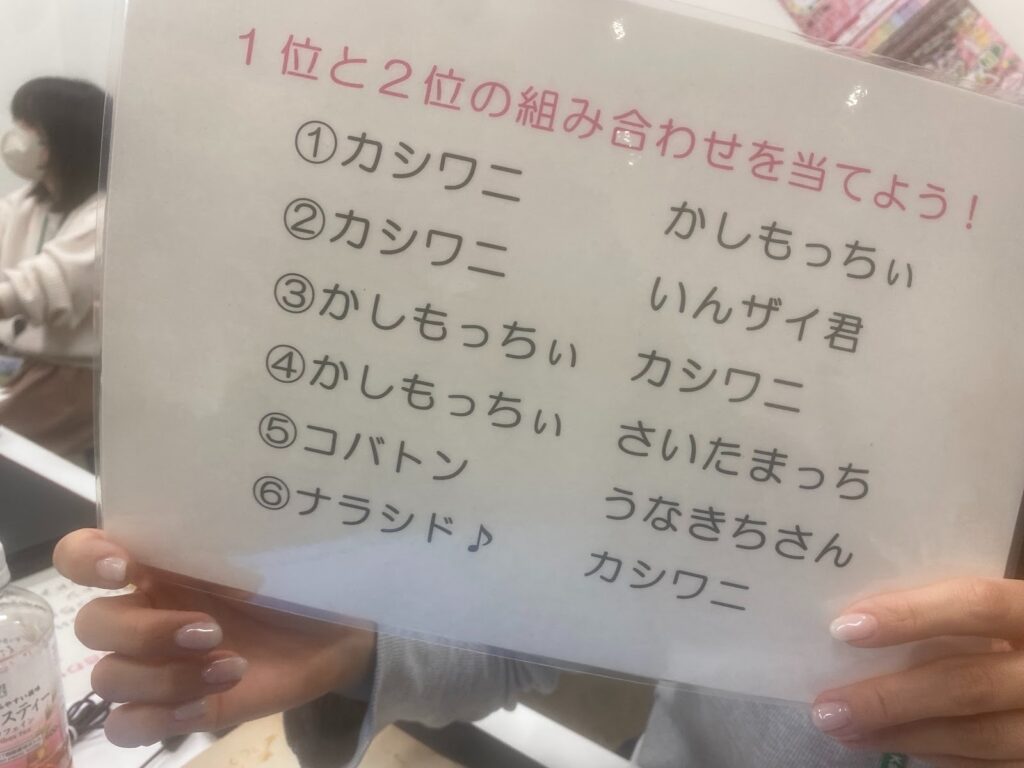 1位と2位の組み合わせを当てよう！
①カシワニ かしもっちぃ
②カシワニ いんザイ君
③かしもっちぃ カシワニ
④かしもっちぃ さいたまっち
⑤コバトン うなきちさん
⑥ナラシド♪ カシワニ
スティー